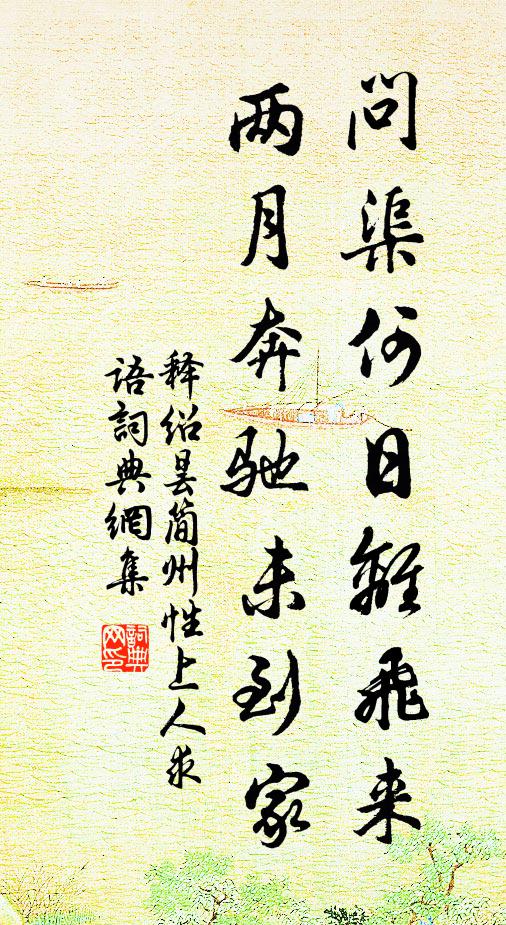 问渠何日離飛来
两月奔驰未到家
释绍昙简州性上人求
语詞典網集
詞典网印